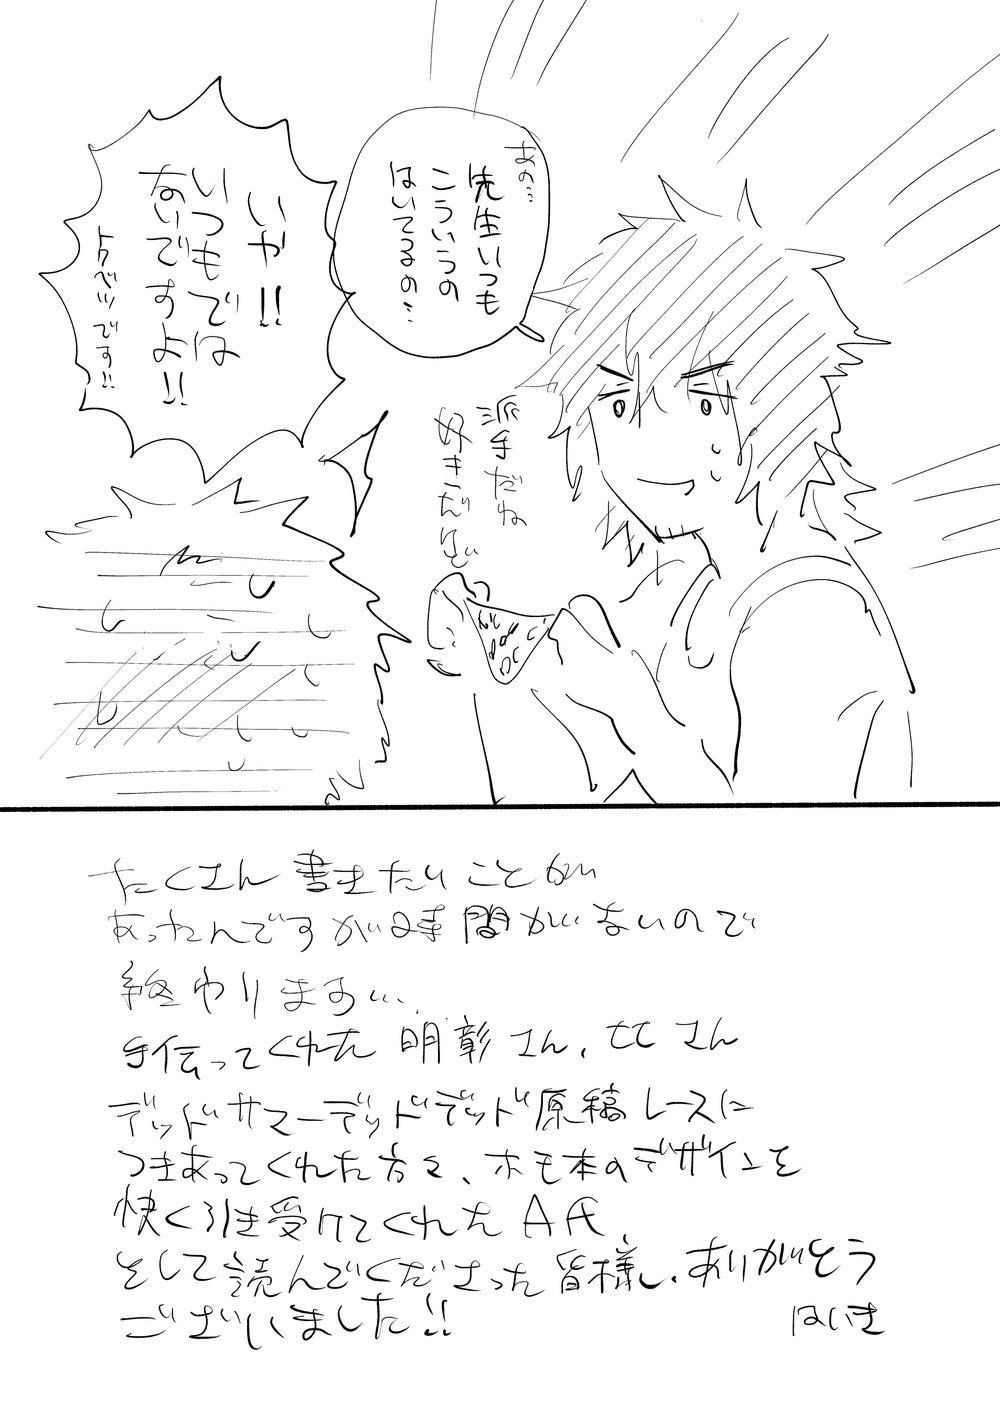 あの…
先生いつも
こういうの
はいてるの…
いや!!
いつもでは
ないですよ!!
トクベツです!!
派手だね
好きだけど
たくさん書きたいことが
あったんですが時間がないので
終わります…
手伝ってくれた明彰さん、七七さん
デッドサマーデッドデッド原稿レースに
つきあってくれた方々、ホモ本のデザインを
快く引き受けてくれたAさん
そして読んでくださった皆様、ありがとう
ございました!!
はいき